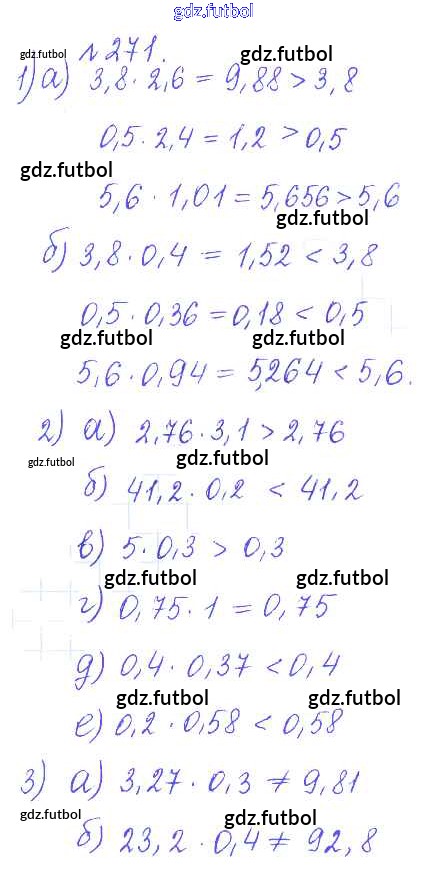 gdz.futbol
№271.
gdz.futbol gdz.futbol
1) а) 3,8 · 2,6 = 9,88 > 3,8
0,5 · 2,4 = 1,2 > 0,5
gdz.futbol
5,6 · 1,01 = 5,656 > 5,6
gdz.futbol
б) 3,8 · 0,4 = 1,52 < 3,8
0,5 · 0,36 = 0,18 < 0,5
gdz.futbol gdz.futbol
5,6 · 0,94 = 5,264 < 5,6.
2) а) 2,76 · 3,1 > 2,76
gdz.futbol gdz.futbol
б) 41,2 · 0,2 < 41,2
в) 5 · 0,3 > 0,3
gdz.futbol gdz.futbol
г) 0,75 · 1 = 0,75
д) 0,4 · 0,37 < 0,4
gdz.futbol gdz.futbol
е) 0,2 · 0,58 < 0,58
3) а) 3,27 · 0,3 ≠ 9,81
gdz.futbol gdz.futbol
б) 23,2 · 0,4 ≠ 92,8